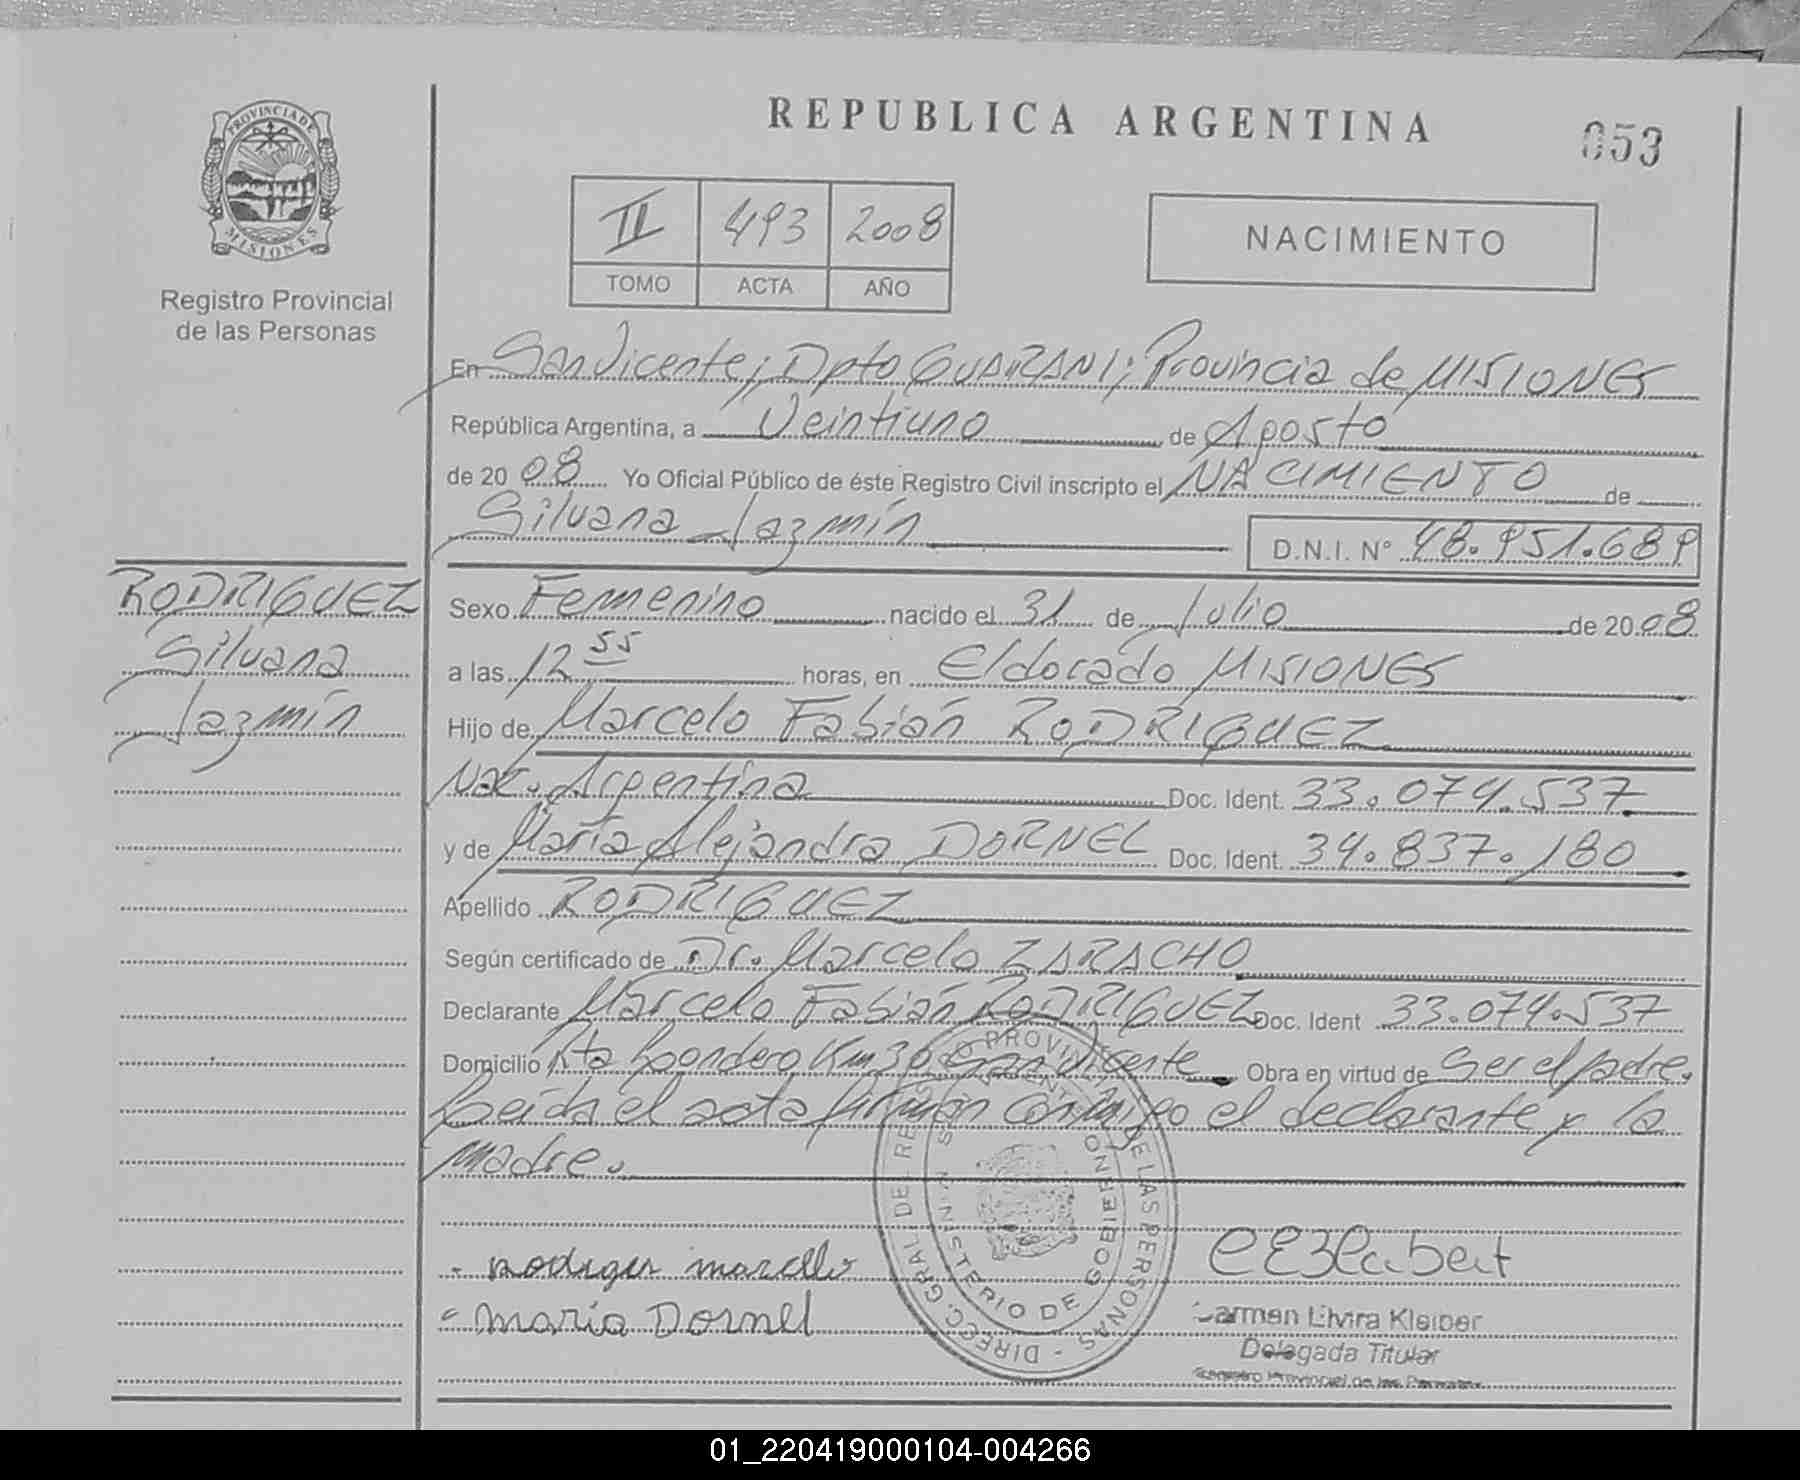 PROVINCIA DE
MISIONES
Registro Provincial
de las Personas
REPUBLICA ARGENTINA
053
II 493 2008
TOMO ACTA AÑO
NACIMIENTO
En San Vicente; Dpto GUARANI; Provincia de MISIONES
República Argentina, a Veintiuno de Agosto
de 2008 Yo Oficial Público de éste Registro Civil inscripto el NACIMIENTO de
Silvana Jazmín D.N.I. Nº 48.951.689
RODRIGUEZ
Silvana
Jazmín
Sexo Femenino nacido el 31 de Julio de 2008
a las 12 55 horas, en Eldorado MISIONES
Hijo de Marcelo Fabián RODRIGUEZ
Nac. Argentina Doc. Ident. 33.074.537
y de María Alejandra DORNEL Doc. Ident. 34.837.180
Apellido RODRIGUEZ
Según certificado de Dr. Marcelo ZARACHO
Declarante Marcelo Fabián RODRIGUEZ Doc. Ident 33.074.537
Domicilio Km 30 San Vicente Obra en virtud de Ser el padre.
Leida el acta firman conmigo el declarante y la
madre.
DIRECC. GRAL. DE REGISTRO PROVINCIAL DE LAS PERSONAS
MINISTERIO DE GOBIERNO
marcelo
Maria Dornel
Carmen Elvira Kleiber
Delegada Titular
Registro Provincial de las Personas
01_220419000104-004266